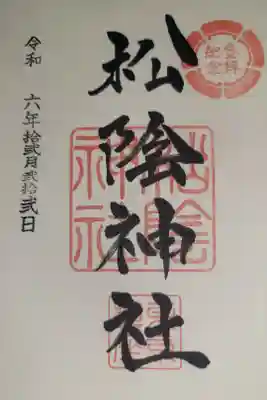 登拝
記念
松陰神社
松陰
神社
令和 六年拾弐月弐拾弐日